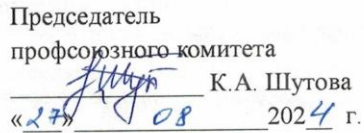 Председатель
профсоюзного комитета
К.А. Шутова
«27» 08 2024 г.